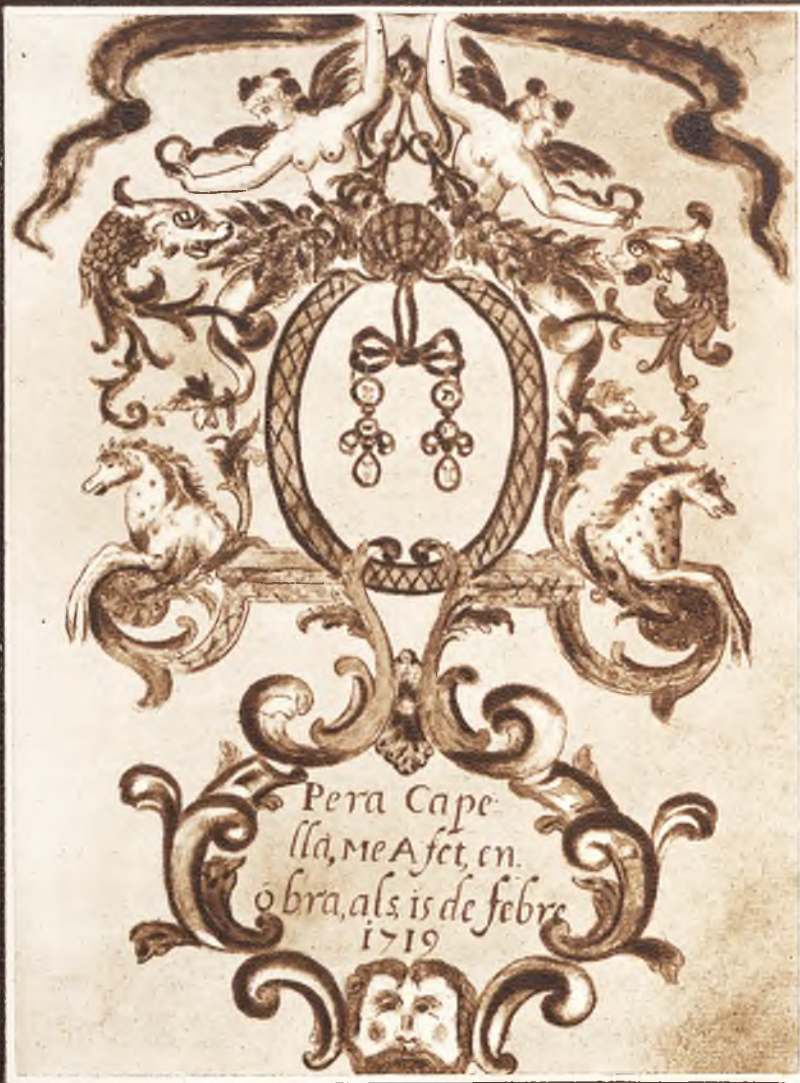 Pera Cape
llà, Me A fet, en.
obra, als is de febre
1719